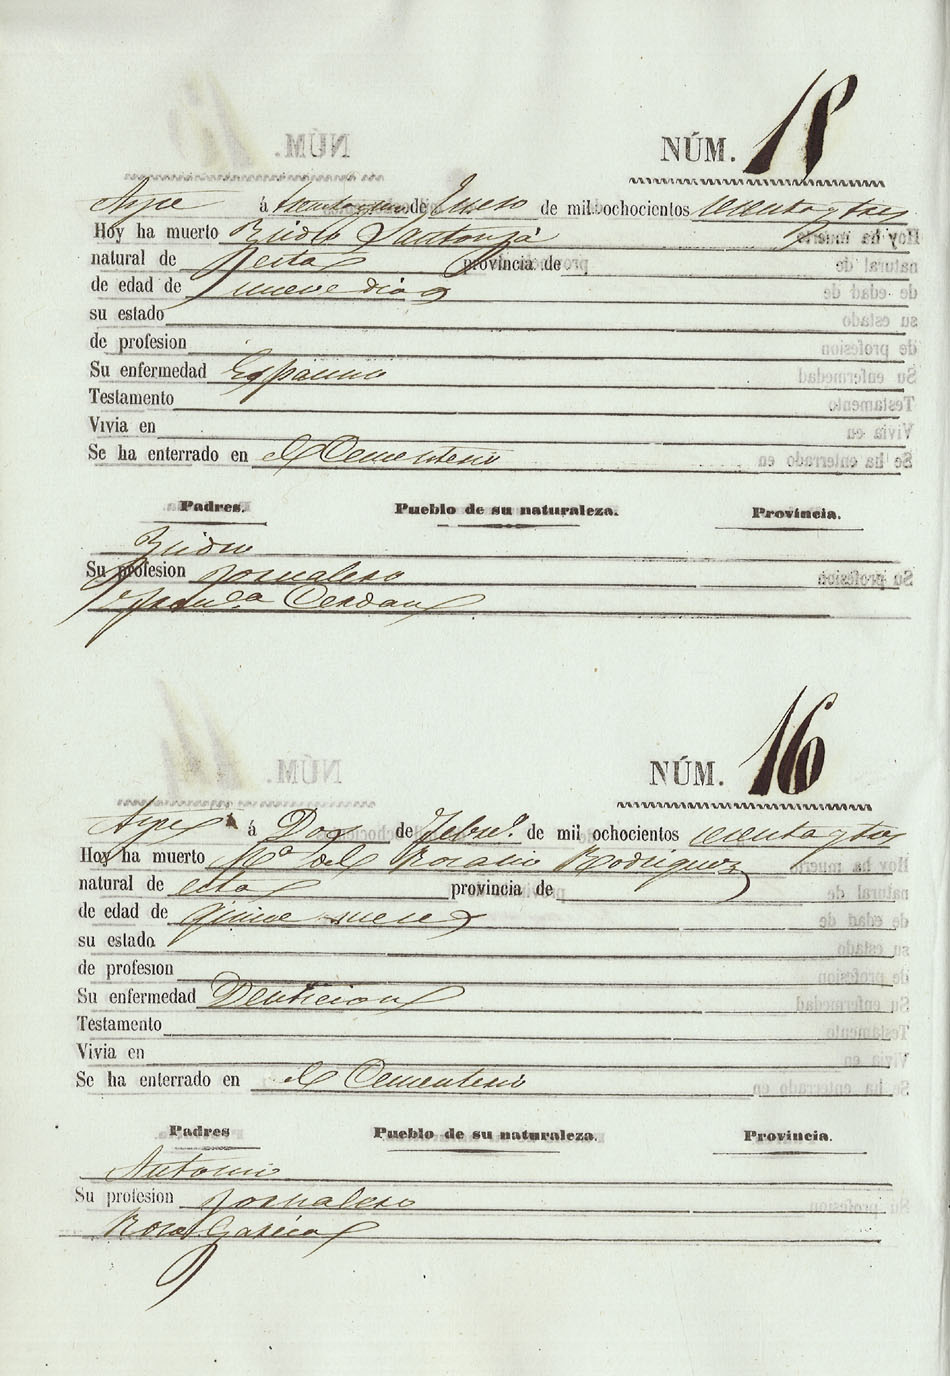 NÚM. 15
Aspe á treinta y uno de Enero de mil ochocientos sesenta y tres
Hoy ha muerto Isidro Santonja
natural de esta provincia de
de edad de nueve dias
su estado
de profesion
Su enfermedad Espasmo
Testamento
Vivia en
Se ha enterrado en el Cementerio
Padres. Pueblo de su naturaleza. Provincia.
Isidro
Su profesion Jornalero
Franca Cerdan
NÚM. 16
Aspe á Dos de Febro. de mil ochocientos sesenta y tres
Hoy ha muerto Ma. del Rosario Rodriguez
natural de esta provincia de
de edad de quince meses
su estado
de profesion
Su enfermedad Denticion
Testamento
Vivia en
Se ha enterrado en el Cementerio
Padres Pueblo de su naturaleza. Provincia.
Antonio
Su profesion Jornalero
Rosa Garcia